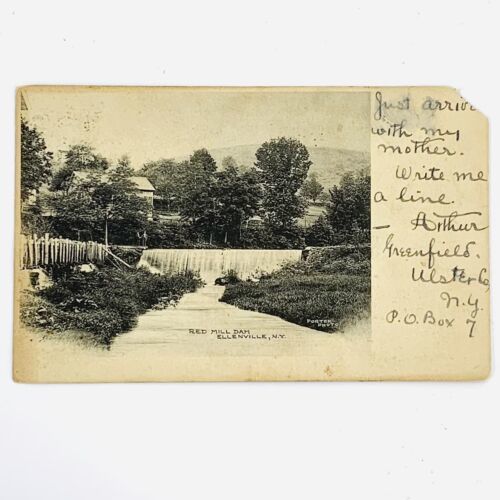 Just arrive
with my
mother.
Write me
a line.
- Arthur
Greenfield.
Ulster Co
N.Y.
P.O. Box 7
RED MILL DAM
ELLENVILLE, N.Y.
PORTER
PHOTO